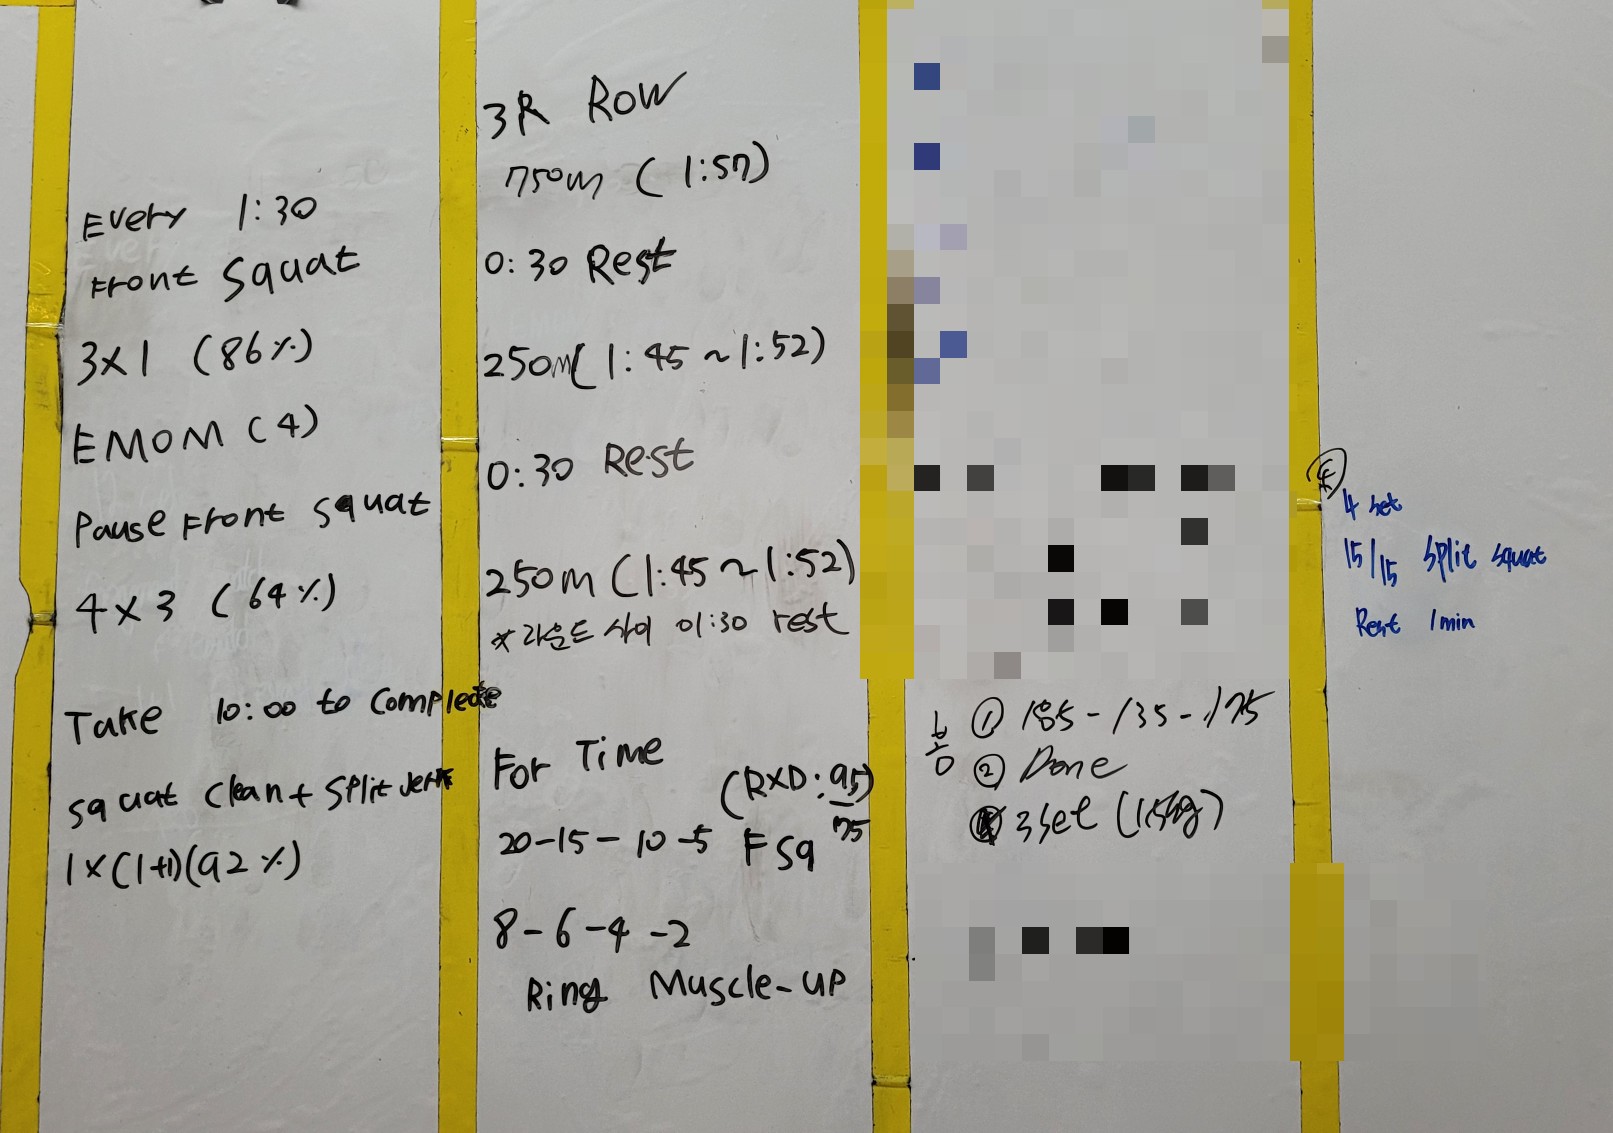 Every 1:30
Front Squat
3x1 (86%)
EMOM (4)
Pause Front Squat
4x3 (64%)
Take 10:00 to Complete
squat Clean + Split Jerk
1x(1+1)(92%)
3R Row
750m (1:57)
0:30 Rest
250m (1:45~1:52)
0:30 Rest
250m (1:45~1:52)
* 라운드 사이 01:30 rest
For Time
(RXD: 95/75)
20-15-10-5 F sq
8-6-4-2
Ring Muscle-up
① 185-135-175
② Done
3set
4 set
15/15 split squat
Rest 1min